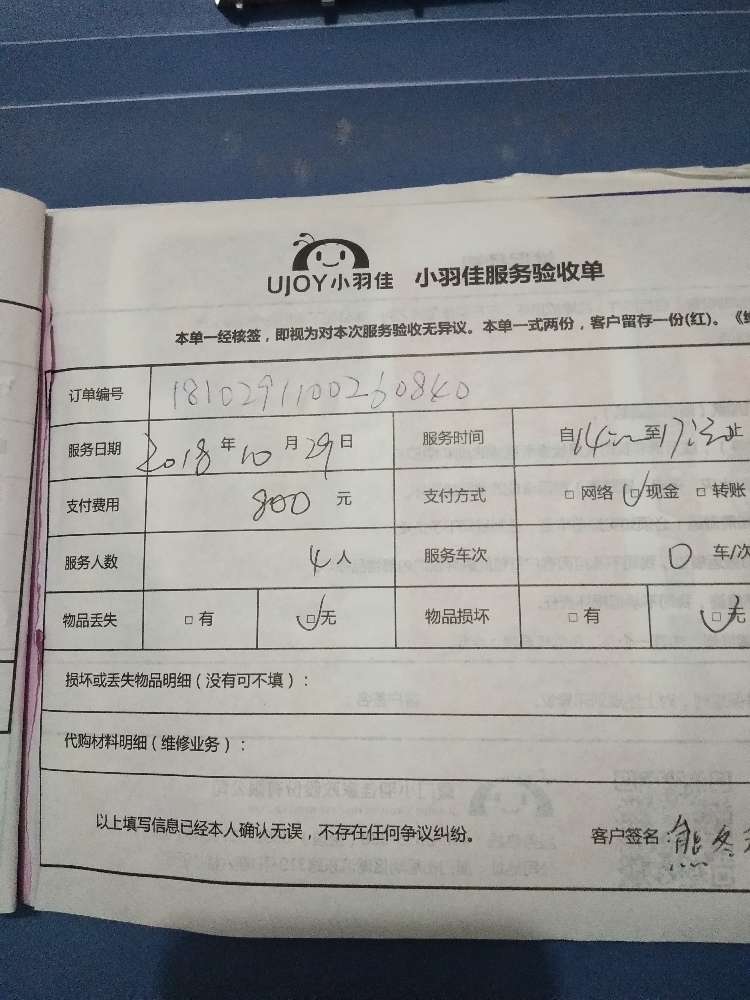 UJOY小羽佳 小羽佳服务验收单
本单一经核签，即视为对本次服务验收无异议。本单一式两份，客户留存一份(红)。《
订单编号 1810291100260840
服务日期 2018年10月29日 服务时间 自14:00至17:00止
支付费用 800元 支付方式 □网络 ☑现金 □转账
服务人数 4人 服务车次 0车/次
物品丢失 □有 ☑无 物品损坏 □有 ☑无
损坏或丢失物品明细（没有可不填）：
代购材料明细（维修业务）：
以上填写信息已经本人确认无误，不存在任何争议纠纷。 客户签名：熊冬